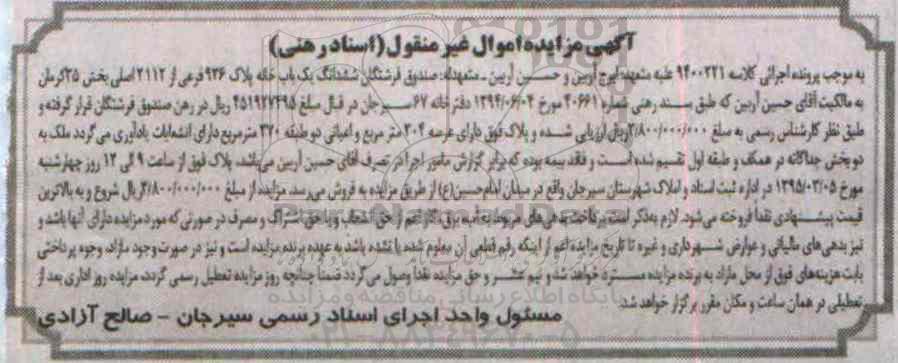 آگهی مزایده اموال غیر منقول (اسناد رهنی)
به موجب پرونده اجرائی کلاسه ۹۴۰۰۲۲۱ علیه متعهد: ایرج آربین و حسین آربین - متعهدله: صندوق فرشتگان ششدانگ یک باب خانه پلاک ۹۳۶ فرعی از ۲۱۱۲ اصلی بخش ۳۵ کرمان
به مالکیت آقای حسین آربین که طبق سند رهنی شماره ۴۰۶۶۱ مورخ ۱۳۹۴/۰۶/۰۴ دفترخانه ۶۷ سیرجان در قبال مبلغ ۴۵۱۹۲۷۴۹۵ ریال در رهن صندوق فرشتگان قرار گرفته و
طبق نظر کارشناس رسمی به مبلغ ۲/۸۰۰/۰۰۰/۰۰۰ ریال ارزیابی شده و پلاک فوق دارای عرصه ۳۰۴ متر مربع و اعیانی دو طبقه ۳۷۰ متر مربع دارای انشعابات یادآوری می گردد ملک به
دو بخش جداگانه در همکف و طبقه اول تقسیم شده است و فاقد بیمه بوده که برابر گزارش مامور اجرا در تصرف آقای حسین آربین می باشد، پلاک فوق از ساعت ۹ الی ۱۲ روز چهارشنبه
مورخ ۱۳۹۵/۰۳/۰۵ در اداره ثبت اسناد و املاک شهرستان سیرجان واقع در میدان امام حسین(ع) از طریق مزایده به فروش می رسد. مزایده از مبلغ ۲/۸۰۰/۰۰۰/۰۰۰ ریال شروع و به بالاترین
قیمت پیشنهادی نقدا فروخته می شود. لازم به ذکر است پرداخت بدهی های مربوط به آب، برق، گاز اعم از حق انشعاب و یا حق اشتراک و مصرف در صورتی که مورد مزایده دارای آنها باشد و
نیز بدهی های مالیاتی و عوارض شهرداری و غیره تا تاریخ مزایده اعم از اینکه رقم قطعی آن معلوم شده یا نشده باشد به عهده برنده مزایده است و نیز در صورت وجود مازاد، وجوه پرداختی
بابت هزینه های فوق از محل مازاد به برنده مزایده مسترد خواهد شد و نیم عشر و حق مزایده نقدا وصول می گردد ضمنا چنانچه روز مزایده تعطیل رسمی گردد، مزایده روز اداری بعد از
تعطیلی در همان ساعت و مکان مقرر برگزار خواهد شد.
مسئول واحد اجرای اسناد رسمی سیرجان - صالح آزادی
پایگاه اطلاع رسانی مناقصه و مزایده